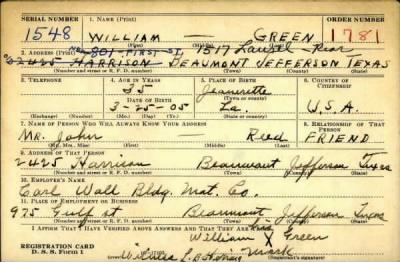 SERIAL NUMBER 1. NAME (Print) ORDER NUMBER
1548 WILLIAM — GREEN 1781
(First) (Middle) (Last)
801-FIRST-ST, 1517 Laurel - Rear
2. ADDRESS (Print)
2425 HARRISON BEAUMONT JEFFERSON TEXAS
(Number and street or R. F. D. number) (Town) (County) (State)
3. TELEPHONE 4. AGE IN YEARS 5. PLACE OF BIRTH 6. COUNTRY OF CITIZENSHIP
35 Jeanerette
DATE OF BIRTH (Town or county)
3-25-05 La. U.S.A.
(Exchange) (Number) (Mo.) (Day) (Yr.) (State or country)
7. NAME OF PERSON WHO WILL ALWAYS KNOW YOUR ADDRESS 8. RELATIONSHIP OF THAT PERSON
Mr. John Reed FRIEND
(Mr., Mrs., Miss) (First) (Middle) (Last)
9. ADDRESS OF THAT PERSON
2425 Harrison Beaumont Jefferson Texas
(Number and street or R. F. D. number) (Town) (County) (State)
10. EMPLOYER'S NAME
Earl Wall Bldg. Mat. Co.
11. PLACE OF EMPLOYMENT OR BUSINESS
975 Gulf st Beaumont - Jefferson Texas
(Number and street or R. F. D. number) (Town) (County) (State)
I AFFIRM THAT I HAVE VERIFIED ABOVE ANSWERS AND THAT THEY ARE TRUE.
William X Green
REGISTRATION CARD
D. S. S. Form 1 mark